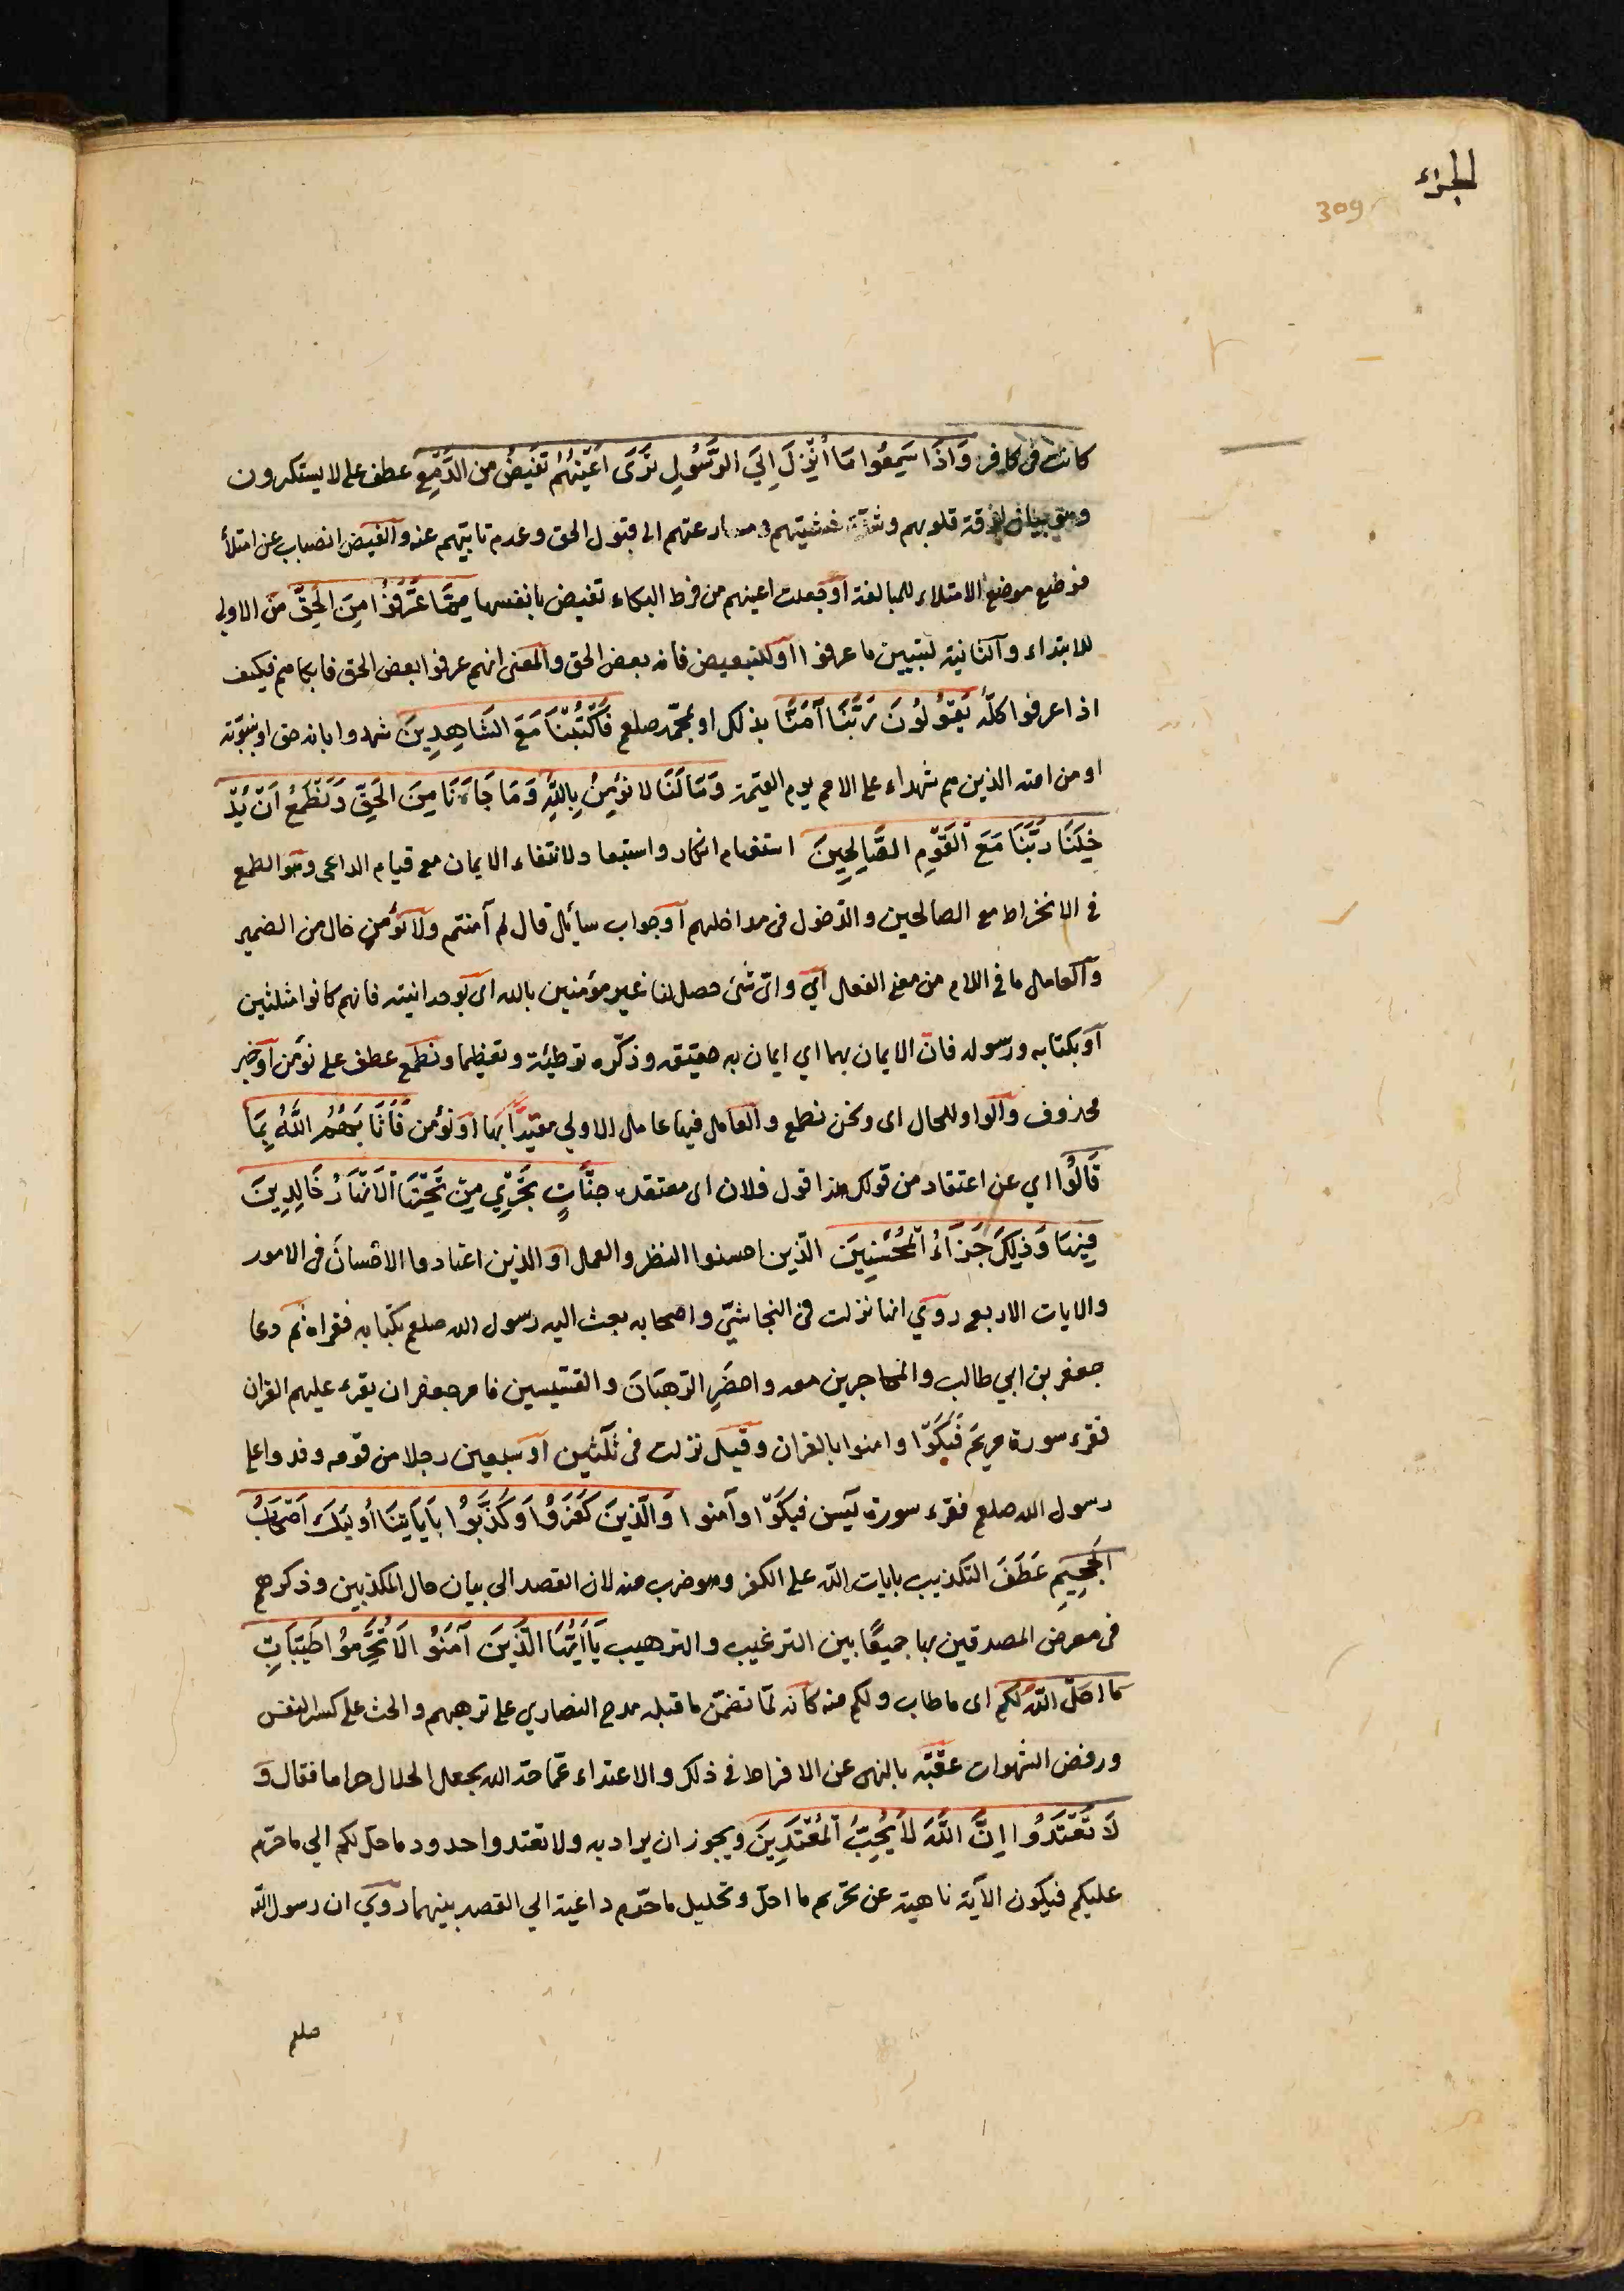 الجزء
309
كانت في كافر وَاذَا سَمِعُوا مَا أُنْزِلَ اِلَي الرَّسُولِ تَرَى اَعْيُنَهُمْ تَفِيضُ من الدَّمْعِ عطف على لا يستكبرون
وهو بيان لرقة قلوبهم وشدّة خشيتهم ومسارعتهم الى قبول الحق وعدم تابّيهم عنه والفيض انصباب عن امتلأ
فوضع موضع الامتلاء للمبالغة او جعلت اعينهم من فرط البكاء تفيض بانفسها مِمَّا عَرَفُوْا مِنَ الحَقِّ من الاولي
للابتداء والثانية لتبيين ما عرفوا او للتبعيض فانه بعض الحق والمعنى انهم عرفوا بعض الحق فابكاهم فكيف
اذا عرفوا كلّه يَقُولُونَ رَبَّنَا آمَنَّا بذلك او بمحمّد صلعم فَاكْتُبْنَا مَعَ الشَاهِدِينَ شهدوا بانه حق او بنبوّته
او من امته الذين هم شهداء على الامم يوم القيمة وَمَا لَنَا لا نؤمِنُ بِاللّهِ وَمَا جَاءَنَا مِنَ الحَقِّ وَنَطْمَعُ اَنْ يُدْ
خِلَنَا رَبُّنَا مَعَ الْقَوْمِ الصَّالِحِينَ استفهام انكار واستبعاد لانتفاء الايمان مع قيام الداعي وهو الطمع
في الانخراط مع الصالحين والدّخول في مداخلهم او جواب سائل قال لم آمنتم ولا نؤمن حال من الضمير
والعامل ما في اللام من معنى الفعل اي واى شئ حصل لنا غير مؤمنين بالله اى بوحدانيته فانهم كانوا مثلثين
او بكتابه ورسوله فان الايمان بهما اي ايمان به حقيقة وذكره توطئة وتعظيما ونطمع عطف على نؤمن او خبر
محذوف والواو للحال اى ونحن نطمع والعامل فيها عامل الاولي مقيّدًا بها او نؤمن فَأَثَابَهُمُ اللّهُ بِمَا
قَالُوْا اي عن اعتقاد من قولك هذا قول فلان اى معتقده جنَّاتٍ تَجْرِي مِنْ تَحْتِهَا الْاَنْهَارُ خَالِدِينَ
فِيهَا وَذٰلِكَ جَزَاءُ الْمُحْسِنِينَ الّذين احسنوا النظر والعمل او الذين اعتادوا الاحسان في الامور
والايات الاربع روي انها نزلت في النجاشيّ واصحابه بعث اليه رسول الله صلعم بكتابه فقراه ثم دعا
جعفر بن ابي طالب والمهاجرين معه واحضر الرّهبان والقسّيسين فامر جعفر ان يقرء عليهم القران
فقرء سورة مريم فَبَكَوْا وامنوا بالقران وقيل نزلت في ثلثين او سبعين رجلا من قومه وفدوا على
رسول الله صلعم فقرء سورة يٓس فبَكَوْا وآمنوا وَالَّذينَ كَفَرُوْا وَكَذَّبُوْا بِآيَاتِنَا أُولٰئِكَ اَصْحَابُ
الْجَحِيمِ عَطَفَ التكذيب بايات اللّه على الكفر وهو ضرب منه لان القصد الى بيان حال المكذبين وذكرهم
في معرض المصدقين بها جميعًا بين الترغيب والترهيب يَاأَيُّهَا الَّذِينَ آمَنُوْا لَا تُحَرِّمُوْا طَيِّبَاتِ
مَا احَلَّ اللّهُ لَكُم اى ما طاب ولكم منه كانه لمّا تضمّن ما قبله مدح النصاري على ترهبهم والحث على كسر النفس
ورفض الشهوات عقّبه بالنهى عن الافراط في ذلك والاعتداء عمّا حدّ الله بجعل الحلال حراما فقال وَ
لَا تَعْتَدُوْا اِنَّ اللَّهَ لَا يُحِبُّ الْمُعْتَدِينَ ويجوز ان يراد به ولا تعتدوا حدود ما حلّ لكم الي ما حرّم
عليكم فيكون الآية ناهية عن تحريم ما احلّ وتحليل ما حرّم داعية الي القصد بينهما روي ان رسول اللّه
صلعم